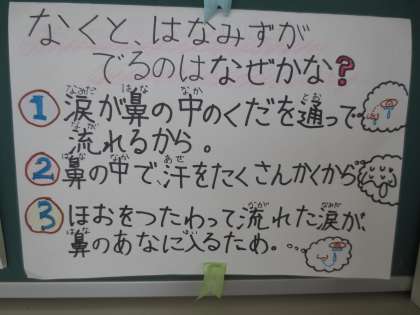 なくと、はなみずが
でるのはなぜかな?
① 涙が鼻の中のくだを通って
流れるから。
② 鼻の中で、汗をたくさんかくから
③ ほおをつたわって流れた涙が、
鼻のあなに入るため。